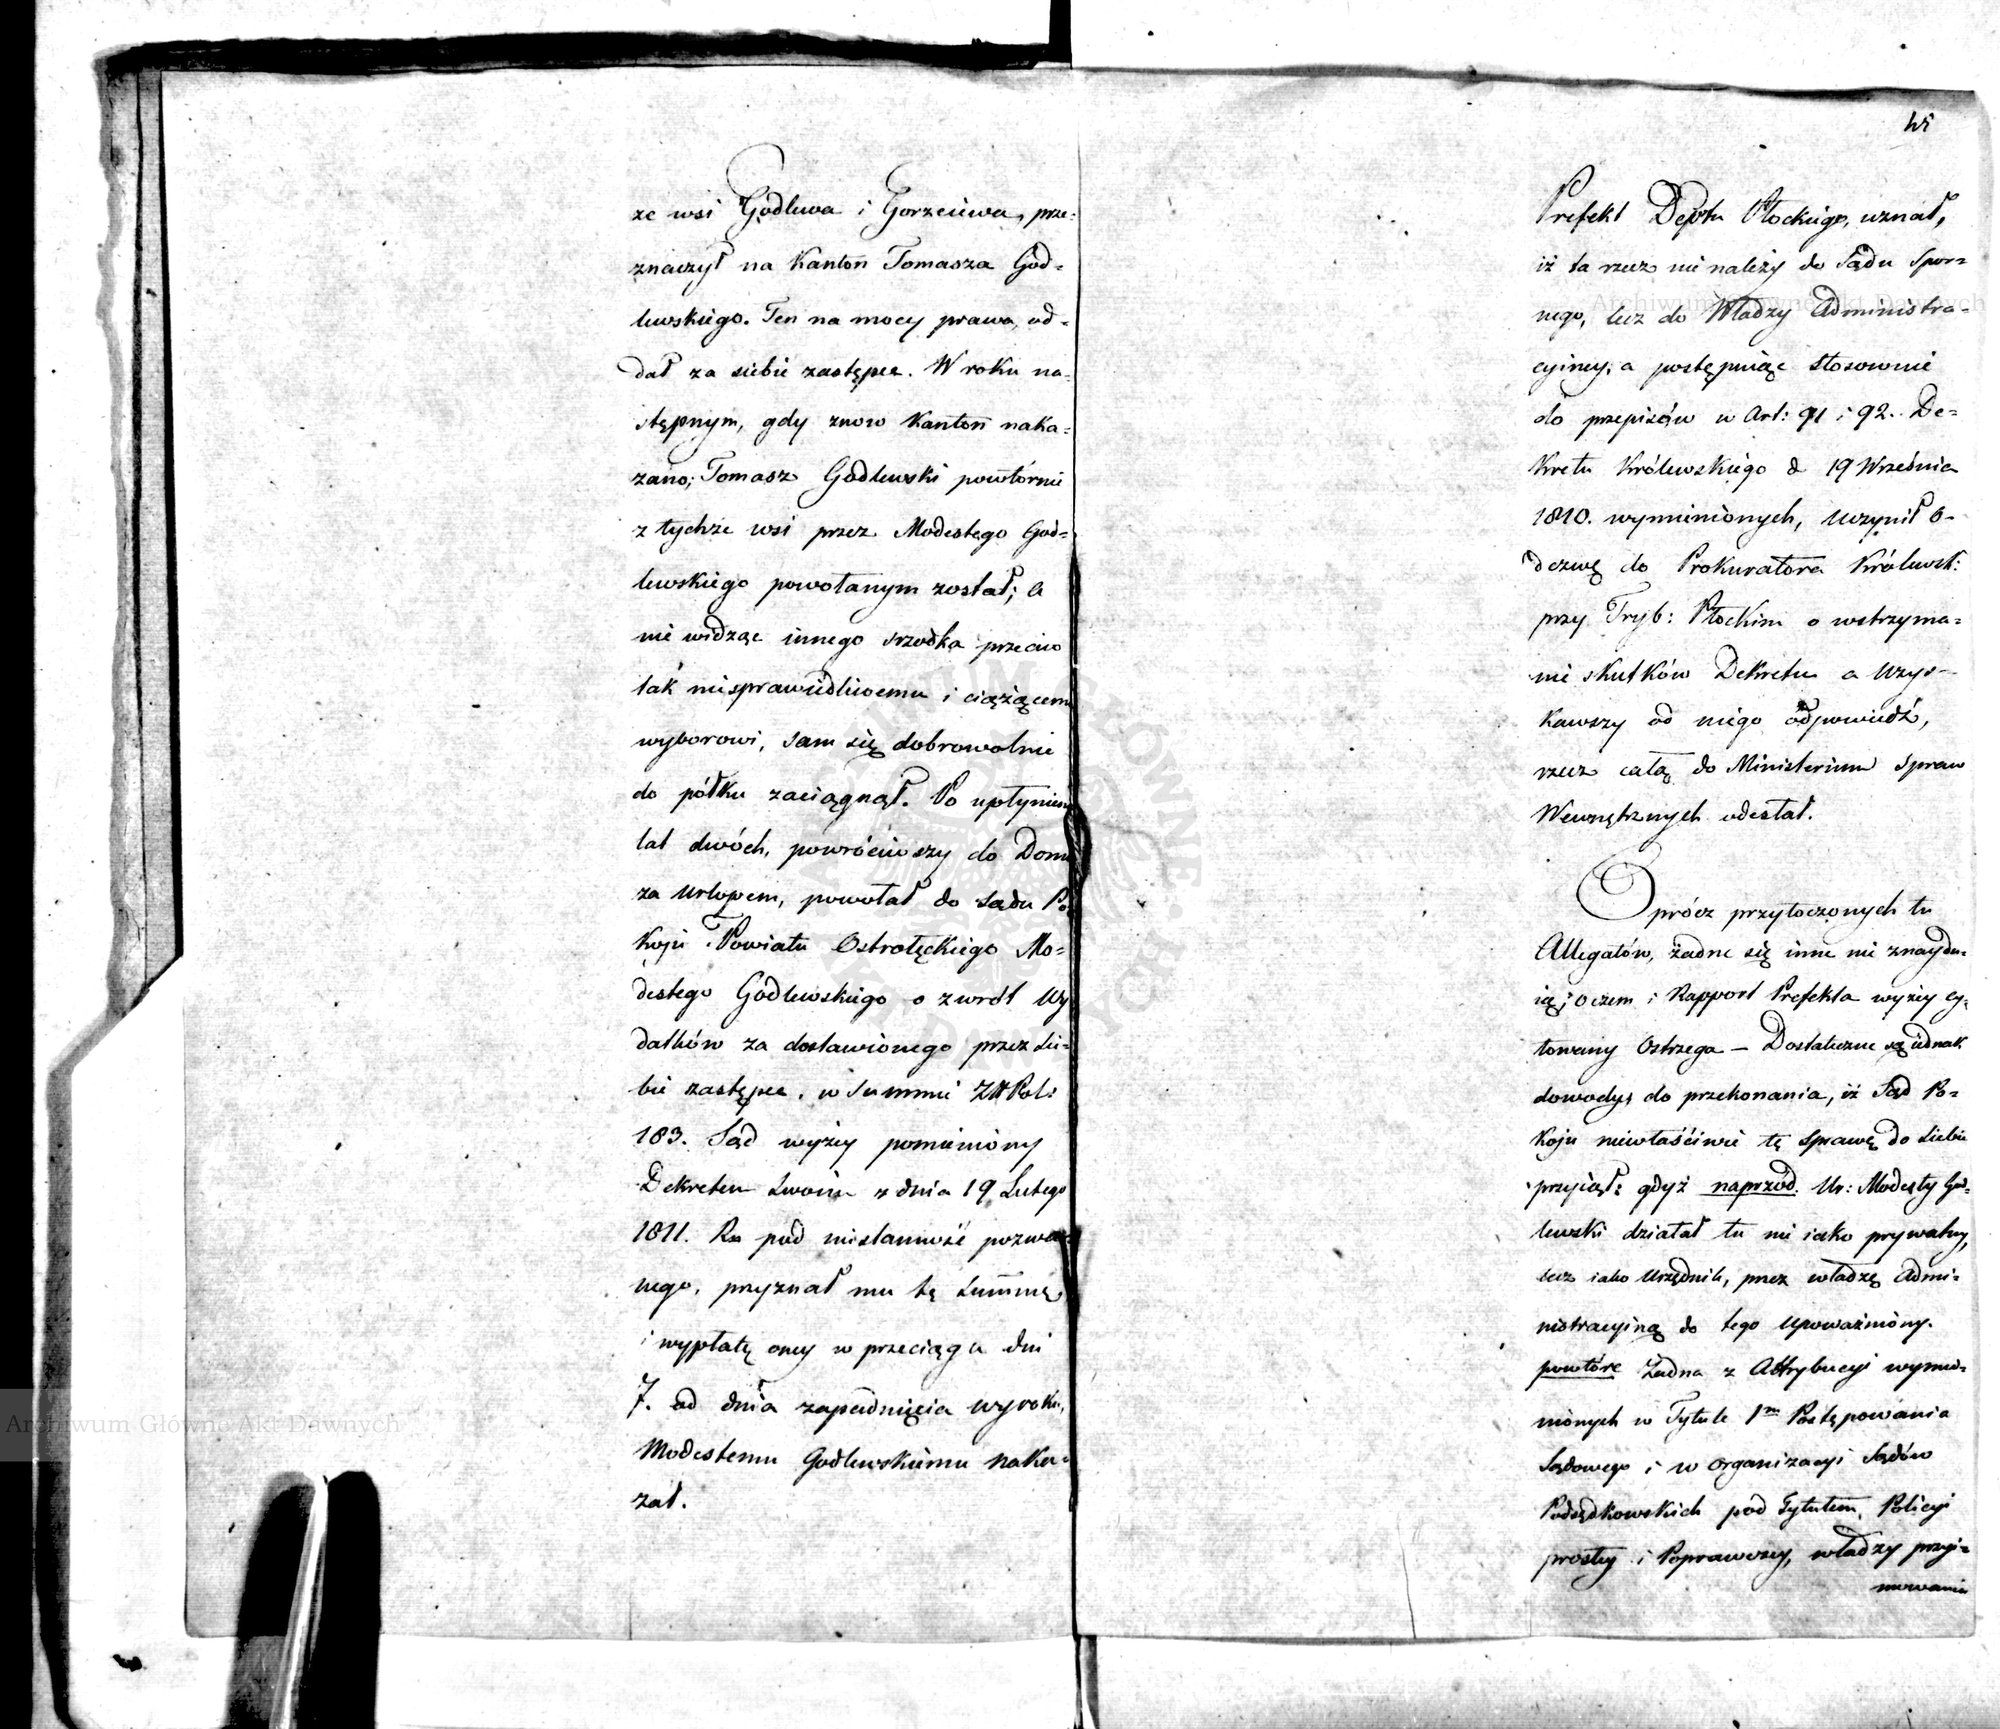 ze wsi Godlewa i Gorzeiewa, prze-
znaczył na Kanton Tomasza God-
lewskiego. Ten na mocy prawa, od-
dał za siebie zastępcę. W roku na-
stępnym, gdy znow Kanton naka-
zano; Tomasz Godlewski powtórnie
z tychże wsi przez Modestego God-
lewskiego powołanym został; a
nie widząc innego szrodka przeciw
tak niesprawiedliwemu i ciążącemu
wyborowi, sam się dobrowolnie
do półku zaciągnął. Po upłynieniu
lat dwóch, powróciwszy do Domu
za Urlopem, powołał do Sądu Po-
koju Powiatu Ostrołęckiego Mo-
destego Godlewskiego o zwrót Wy-
datków za dostawionego przez sie-
bie zastępcę, w Summie Zł Pol:
183. Sąd wyżey pomieniony
Dekretem swoim z dnia 19 Lutego
1811. Ru pod niestanność pozwa-
nego, przyznał mu tę Summę
i wypłatę oney w przeciągu dni
7. od dnia zapadnięcia wyroku,
Modestemu Godlewskiemu naka-
zał.
Prefekt Deptu Płockiego, uznał,
iż ta rzecz nie należy do Sądu Spor-
nego, lecz do Władzy Administra-
cyiney; a postępuiąc stosownie
do przepisów w Art: 91 i 92. De-
kretu Królewskiego d 19 Września
1810. wymienionych, uczynił o-
dezwę do Prokuratora Królewsk:
przy Tryb: Płockim o wstrzyma-
nie skutków Dekretu a Uzys-
kawszy od niego odpowiedź,
rzecz całą do Ministerium Spraw
Wewnętrznych odesłał.
Oprócz przytoczonych tu
Allegatów, żadne się inne nie znaydu-
ią; o czem i Rapport Prefekta wyżey cy-
towany Ostrzega — Dostateczne są iednak
dowody, do przekonania, iż Sąd Po-
koju niewłaściwie tę Sprawę do siebie
przyiął; gdyż naprzod. Ur: Modesty God-
lewski działał tu nie iako prywatny,
lecz iako Urzędnik, przez władzę Admi-
nistracyiną do tego Upoważniony.
powtóre Żadna z Attrybucyi wymie-
nionych w Tytule 1m Postępowania
Sądowego i w Organizacyi Sądów
Podsędkowskich pod Tytułem, Policyi
prostey i Poprawczey, władzy przyi-
mowania
Archiwum Główne Akt Dawnych
Archiwum Główne Akt Dawnych